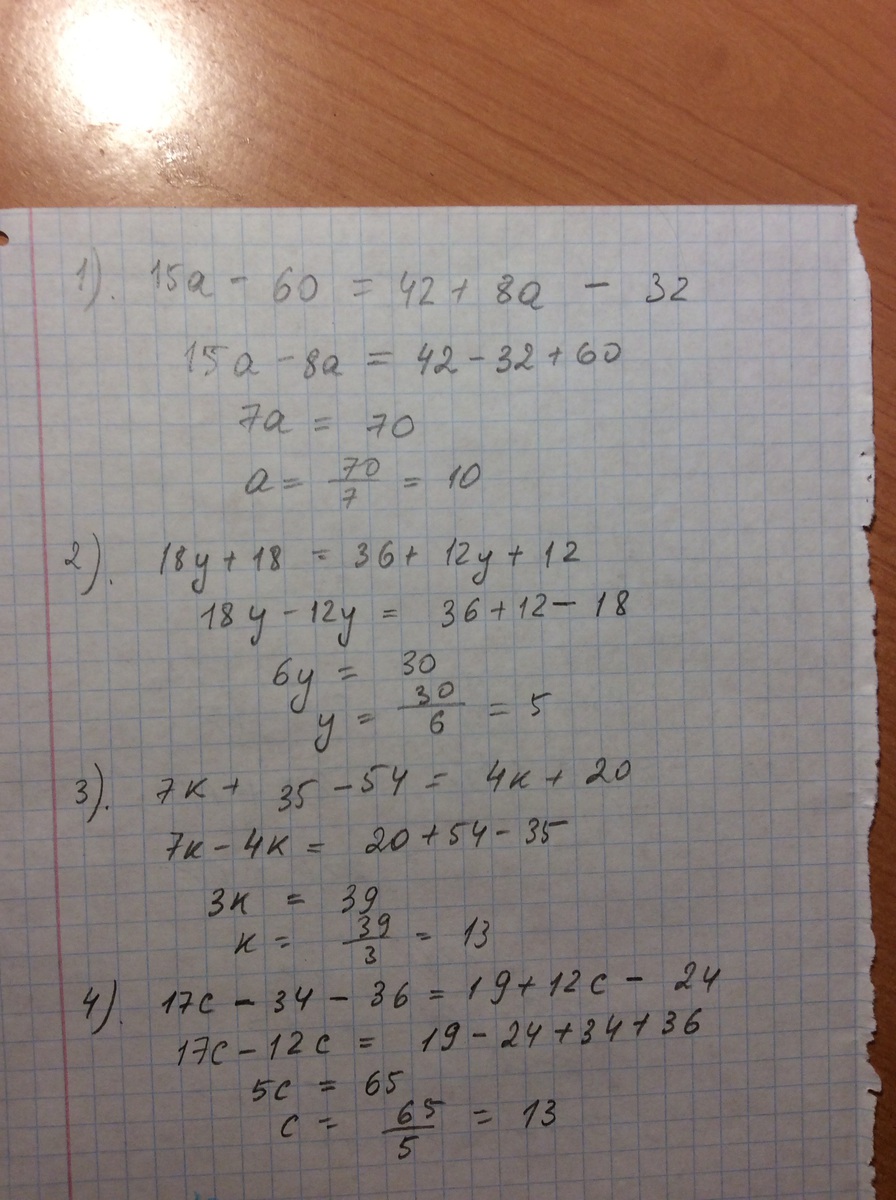 1). 15a - 60 = 42 + 8a - 32
15a - 8a = 42 - 32 + 60
7a = 70
a = 70/7 = 10
2). 18y + 18 = 36 + 12y + 12
18y - 12y = 36 + 12 - 18
6y = 30
y = 30/6 = 5
3). 7к + 35 - 54 = 4к + 20
7к - 4к = 20 + 54 - 35
3к = 39
к = 39/3 = 13
4). 17c - 34 - 36 = 19 + 12c - 24
17c - 12c = 19 - 24 + 34 + 36
5c = 65
c = 65/5 = 13